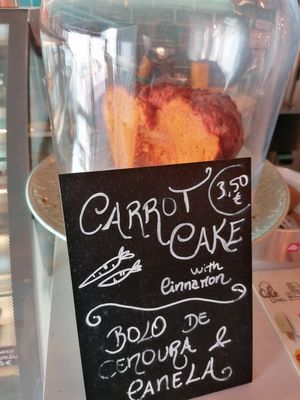 CARROT
3.50
€
CAKE
with
Cinnamon
BOLO DE
CENOURA &
CANELA